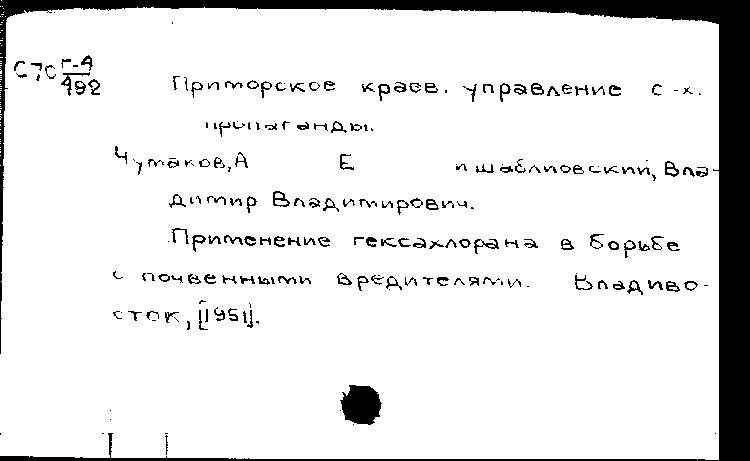 С70 Г-4
492
Приморское краев. управление с-х.
пропаганды.
Чумаков, А Е и Шаблиовский, Вла-
димир Владимирович.
Применение гексахлорана в борьбе
с почвенными вредителями. Владиво-
сток, [1951].